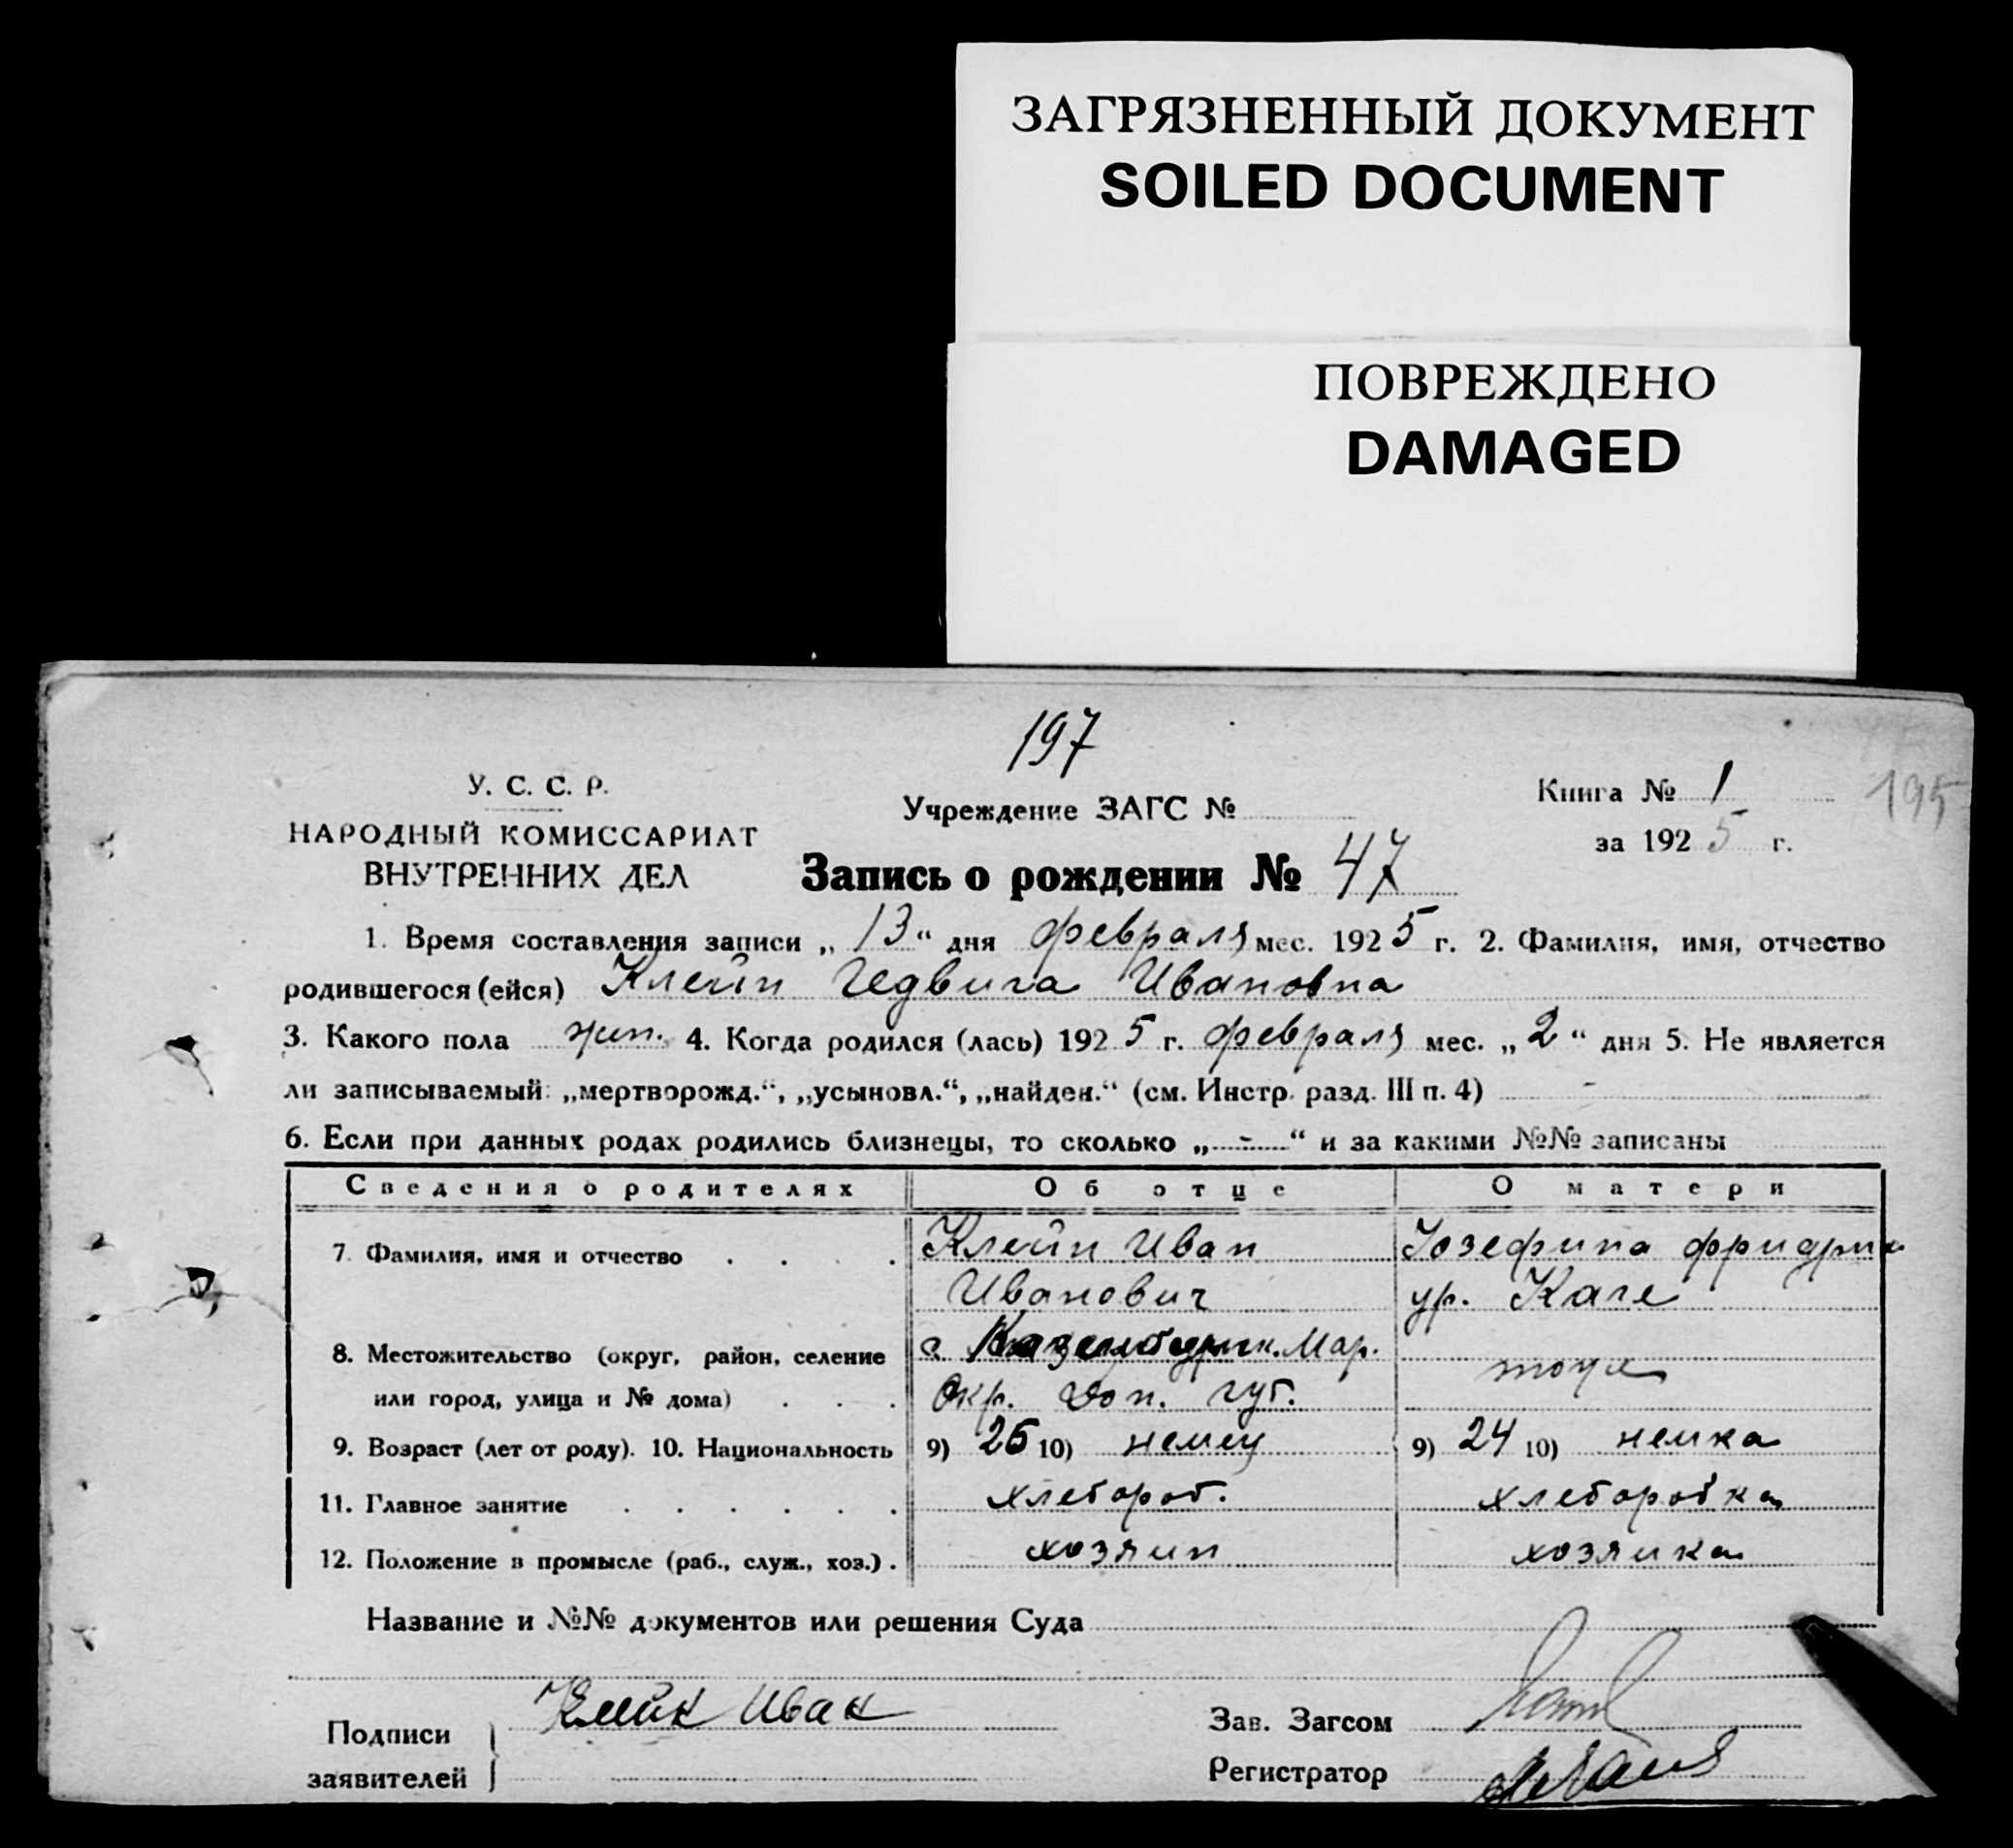 ЗАГРЯЗНЕННЫЙ ДОКУМЕНТ
SOILED DOCUMENT
ПОВРЕЖДЕНО
DAMAGED
197
У. С. С. Р.
НАРОДНЫЙ КОМИССАРИАТ
ВНУТРЕННИХ ДЕЛ
Учреждение ЗАГС №
Книга № 1
195
за 1925 г.
Запись о рождении № 47
1. Время составления записи „13“ дня февраля мес. 1925 г. 2. Фамилия, имя, отчество
родившегося (ейся) Клейн Гедвига Ивановна
3. Какого пола жен. 4. Когда родился (лась) 1925 г. февраля мес. „2“ дня 5. Не является
ли записываемый: „мертворожд.“, „усыновл.“, „найден.“ (см. Инстр. разд. III п. 4) -
6. Если при данных родах родились близнецы, то сколько „-“ и за какими №№ записаны
Сведения о родителях Об отце О матери
7. Фамилия, имя и отчество Клейн Иван Юзефина
Иванович ур.
8. Местожительство (округ, район, селение с. Мар.
или город, улица и № дома) Окр. Дон. губ. тоже
9. Возраст (лет от роду). 10. Национальность 9) 26 10) немец 9) 24 10) немка
11. Главное занятие хлебороб. хлеборобка
12. Положение в промысле (раб., служ., хоз.) хозяин хозяйка
Название и №№ документов или решения Суда
Подписи Клейн Иван
заявителей
Зав. Загсом
Регистратор